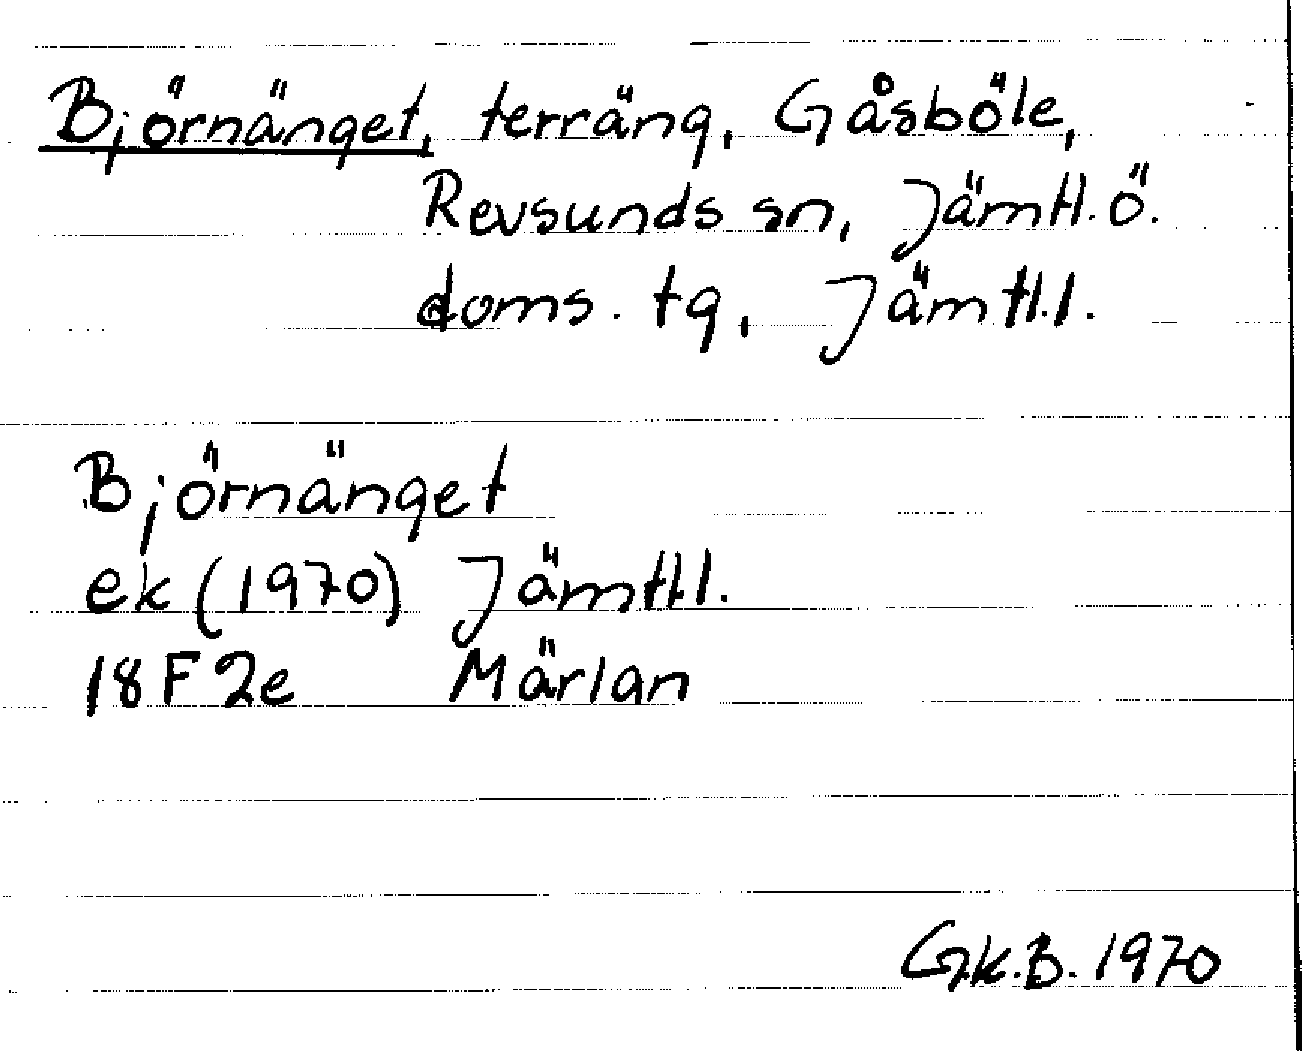 Björnänget, terräng, Gåsböle,
Revsunds sn, Jämtl. ö.
doms. tg, Jämtl.l.
Björnänget
ek (1970) Jämtl.l.
18F2e Märlan
G.K.B. 1970